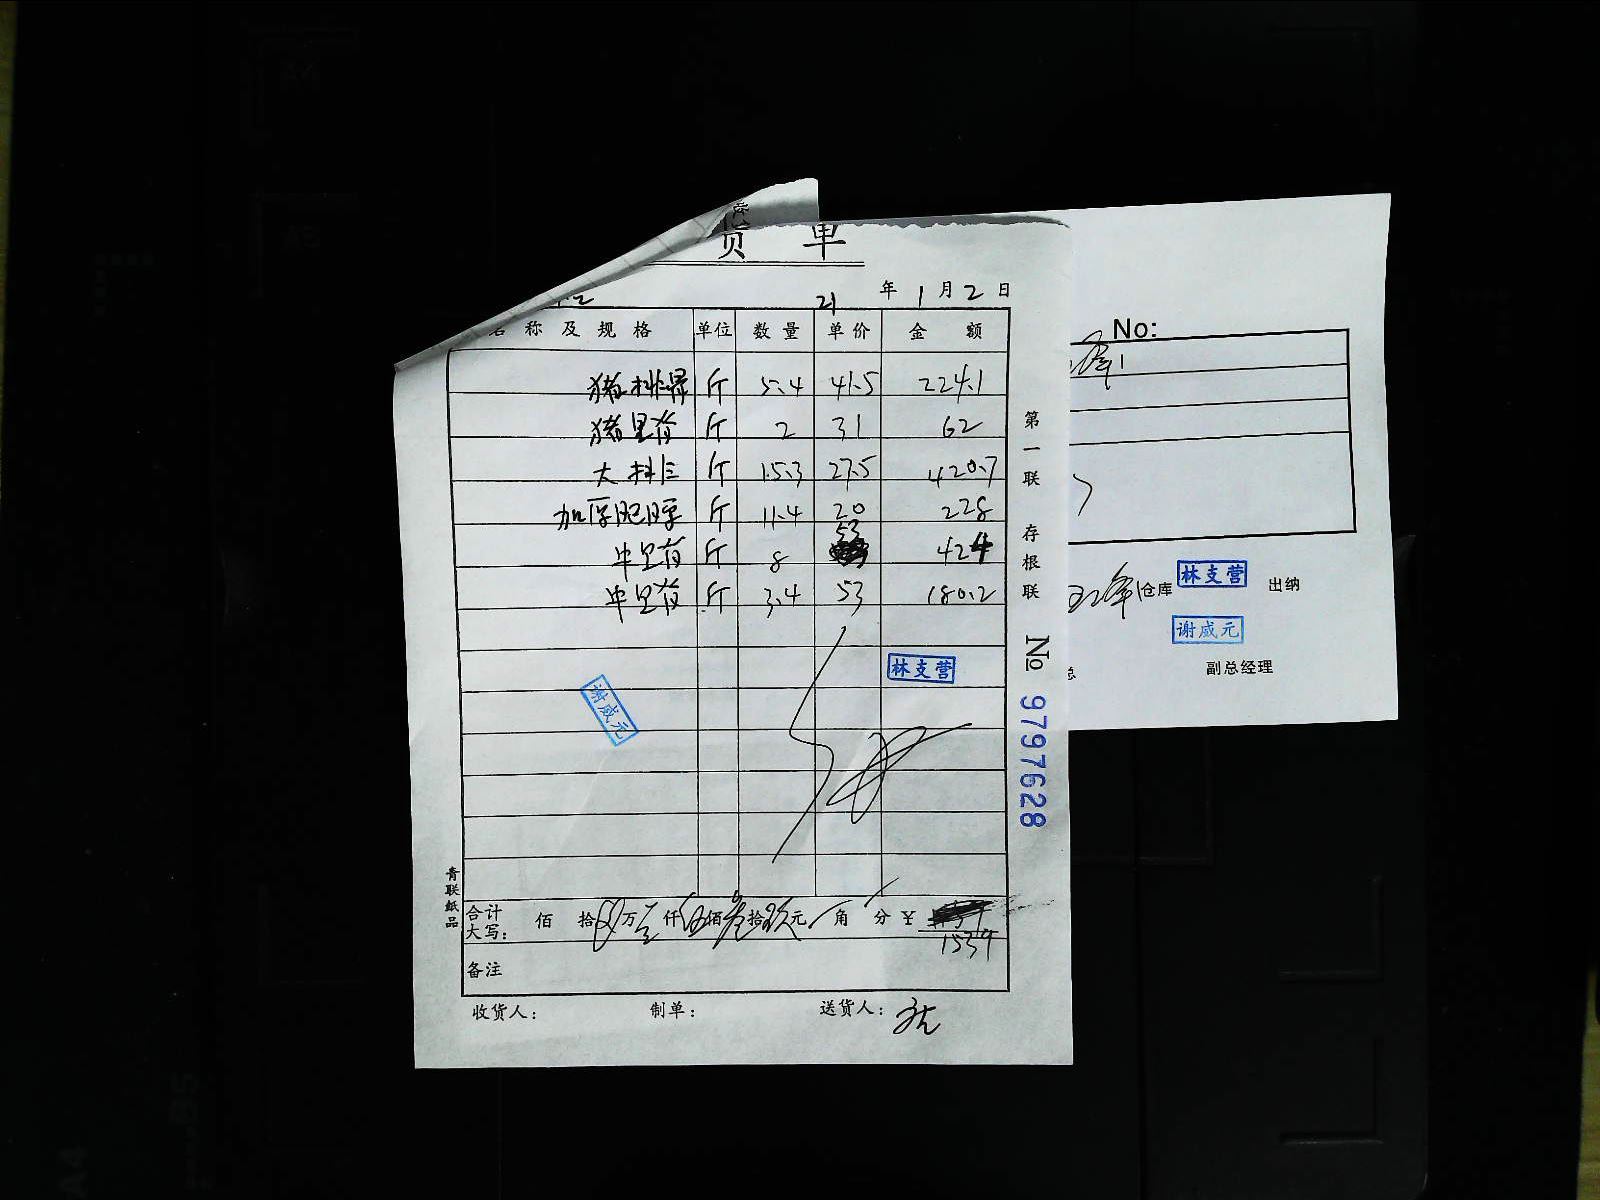 货 单
21 年 1 月 2 日
名 称 及 规 格 单位 数 量 单 价 金 额
猪排骨 斤 5.4 41.5 224.1
猪里脊 斤 2 31 62
大排 斤 15.3 27.5 420.7
加厚肥膘 斤 11.4 20 228
牛里脊 斤 8 53 424
牛里脊 斤 3.4 53 180.2
林支营
谢威元
合计
大写: 佰 拾 万 仟伍佰叁拾玖元 角 分 ¥
1539
备注
收货人: 制单: 送货人:
青联纸品
第一联 存根联 № 9797628
No:
仓库 林支营 出纳
谢威元
总 副总经理
A4
B5